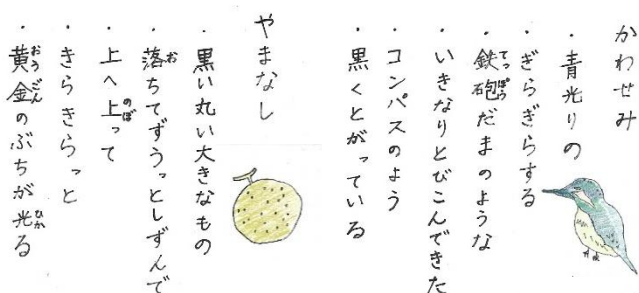 かわせみ
・青光りの
・ぎらぎらする
・鉄砲だまのような
・いきなりとびこんできた
・コンパスのよう
・黒くとがっている
やまなし
・黒い丸い大きなもの
・落ちてずうっとしずんで
・上へ上って
・きらきらっと
・黄金のぶちが光る